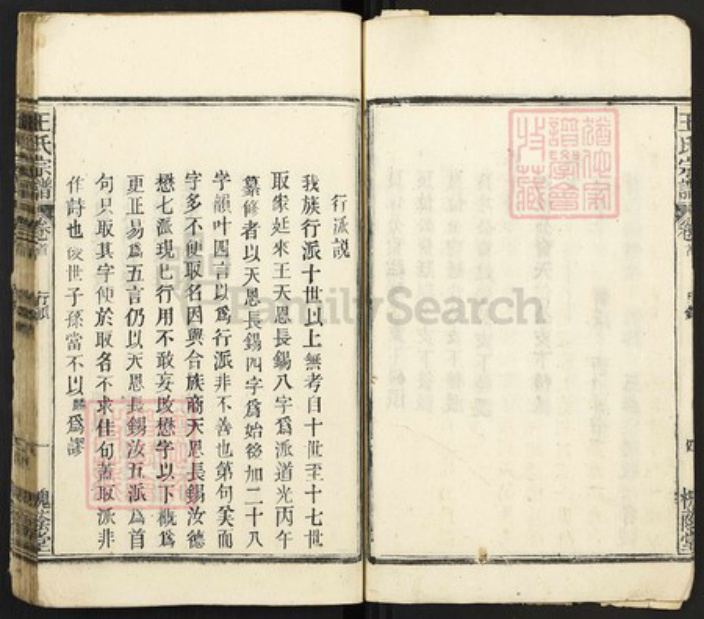 行派說
我族行派十世以上無考自十世至十七世
取崇廷來王天恩長錫八字爲派道光丙午
纂修者以天恩長錫四字爲始後加二十八
字韻叶四言以爲行派非不善也第句矣而
字多不便取名因與合族商天恩長錫汝德
懋七派現已行用不敢妄改懋字以下概爲
更正易爲五言仍以天恩長錫汝五派爲首
句只取其字便於取名不求佳句蓋取派非
作詩也後世子孫當不以爲謬
王氏宗譜
卷首
行派
槐蔭堂
王氏宗譜
卷首
槐蔭堂
FamilySearch